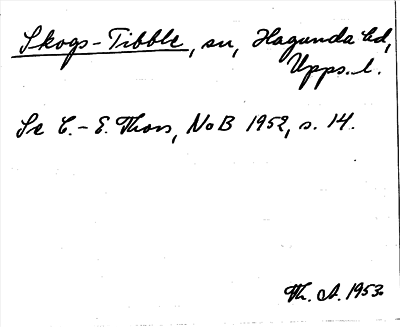 Skogs-Tibble, sn, Hagunda hd,
Upps. l.
Se C.-E. Thors, NoB 1952, s. 14.
Th. A. 1953.